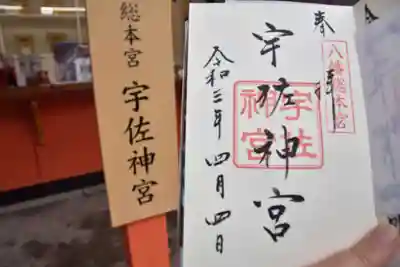 総本宮 宇佐神宮
奉拝
八幡総本宮
宇佐神宮
宇佐
神宮
令和三年 四月 四日